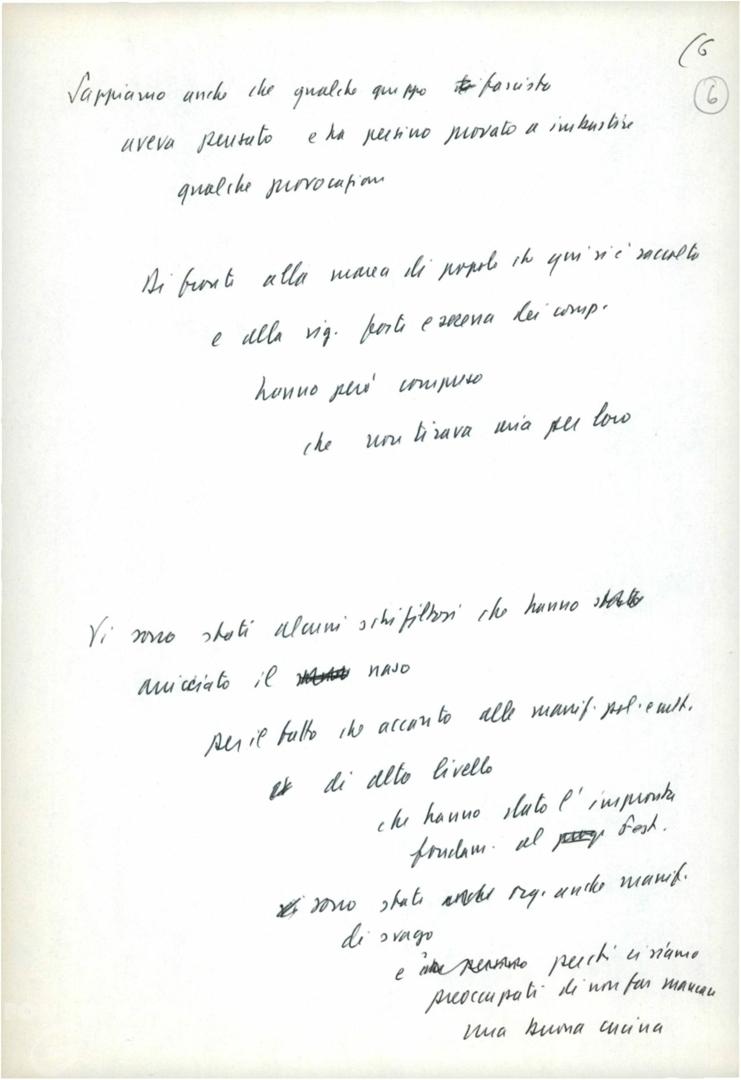 (6
6
Sappiamo anche che qualche gruppo fascista
aveva pensato e ha persino provato a imbastire
qualche provocazione
Di fronte alla marea di popolo che qui si è raccolto
e alla vig. forte e serena dei comp.
hanno però compreso
che non tirava aria per loro
Vi sono stati alcuni schifiltosi che hanno
arricciato il naso
per il fatto che accanto alle manif. pol. e cult.
di alto livello
che hanno dato l'impronta
fondam. al Fest.
sono state org. anche manif.
di svago
e perché ci siamo
preoccupati di non far mancare
una buona cucina